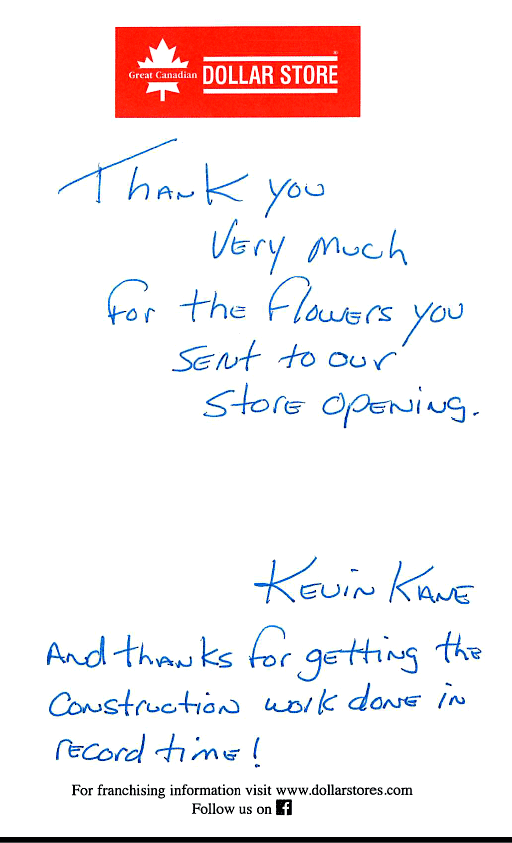 Great Canadian DOLLAR STORE
Thank you
Very much
for the flowers you
sent to our
store opening.
Kevin Kane
And thanks for getting the
construction work done in
record time!
For franchising information visit www.dollarstores.com
Follow us on f